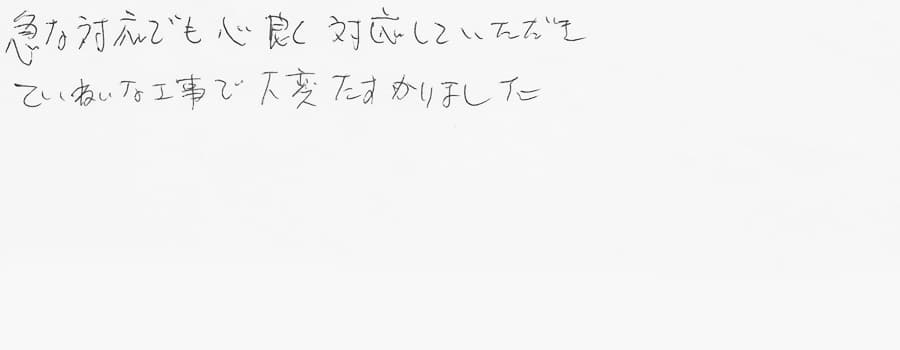 急な対応でも心良く対応していただき
ていねいな工事で大変たすかりました